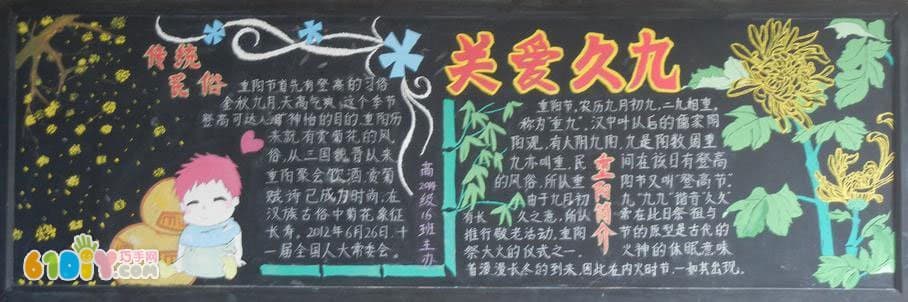 关爱久九
传统
民俗
重阳节首先有登高的习俗
金秋九月,天高气爽,这个季节
登高可达人心旷神怡的目的,重阳历
来就有赏菊花的风
俗,从三国魏晋以来
重阳聚会饮酒,赏菊
赋诗已成为时尚,在
汉族古俗中菊花象征
长寿。2012年6月26日,十
一届全国人大常委会。
高2014级16班主办
重阳简介
重阳节,农历九月初九,二九相重,
称为"重九",汉中叶以后的儒家阴
阳观,有六阴九阳,九是阳数,固重
九亦叫重 民间在该日有登高
的风俗,所以重阳节又叫"登高节"
由于九月初九"九九"谐音"久久"
有长久之意,所以常在此日祭祖与
推行敬老活动,重阳节的原型是古代的
祭大火的仪式之一 火神的休眠意味
着漫漫长冬的到来,因此在内火时节,一如其出现,
61DIY.com
巧手网